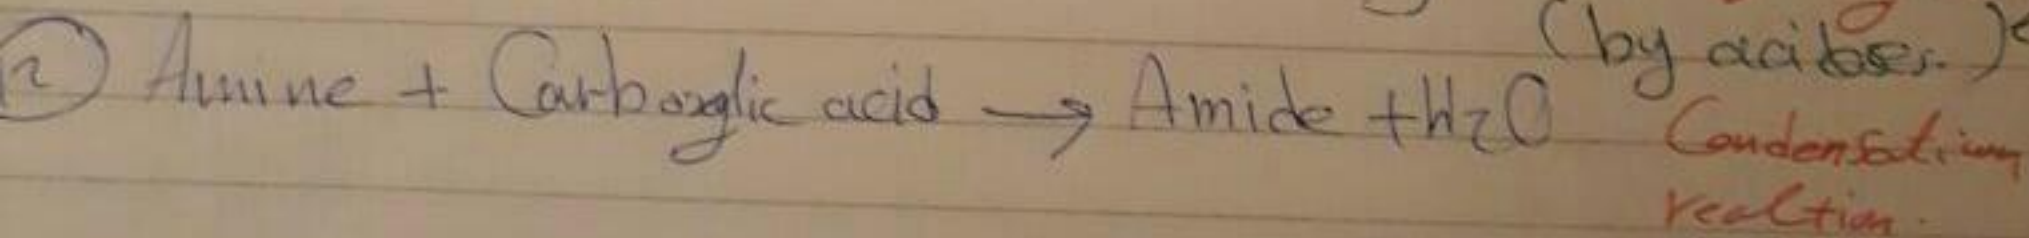 (by acibses.)
② Amine + Carboxylic acid → Amide + H2O
Condensation
reaction.